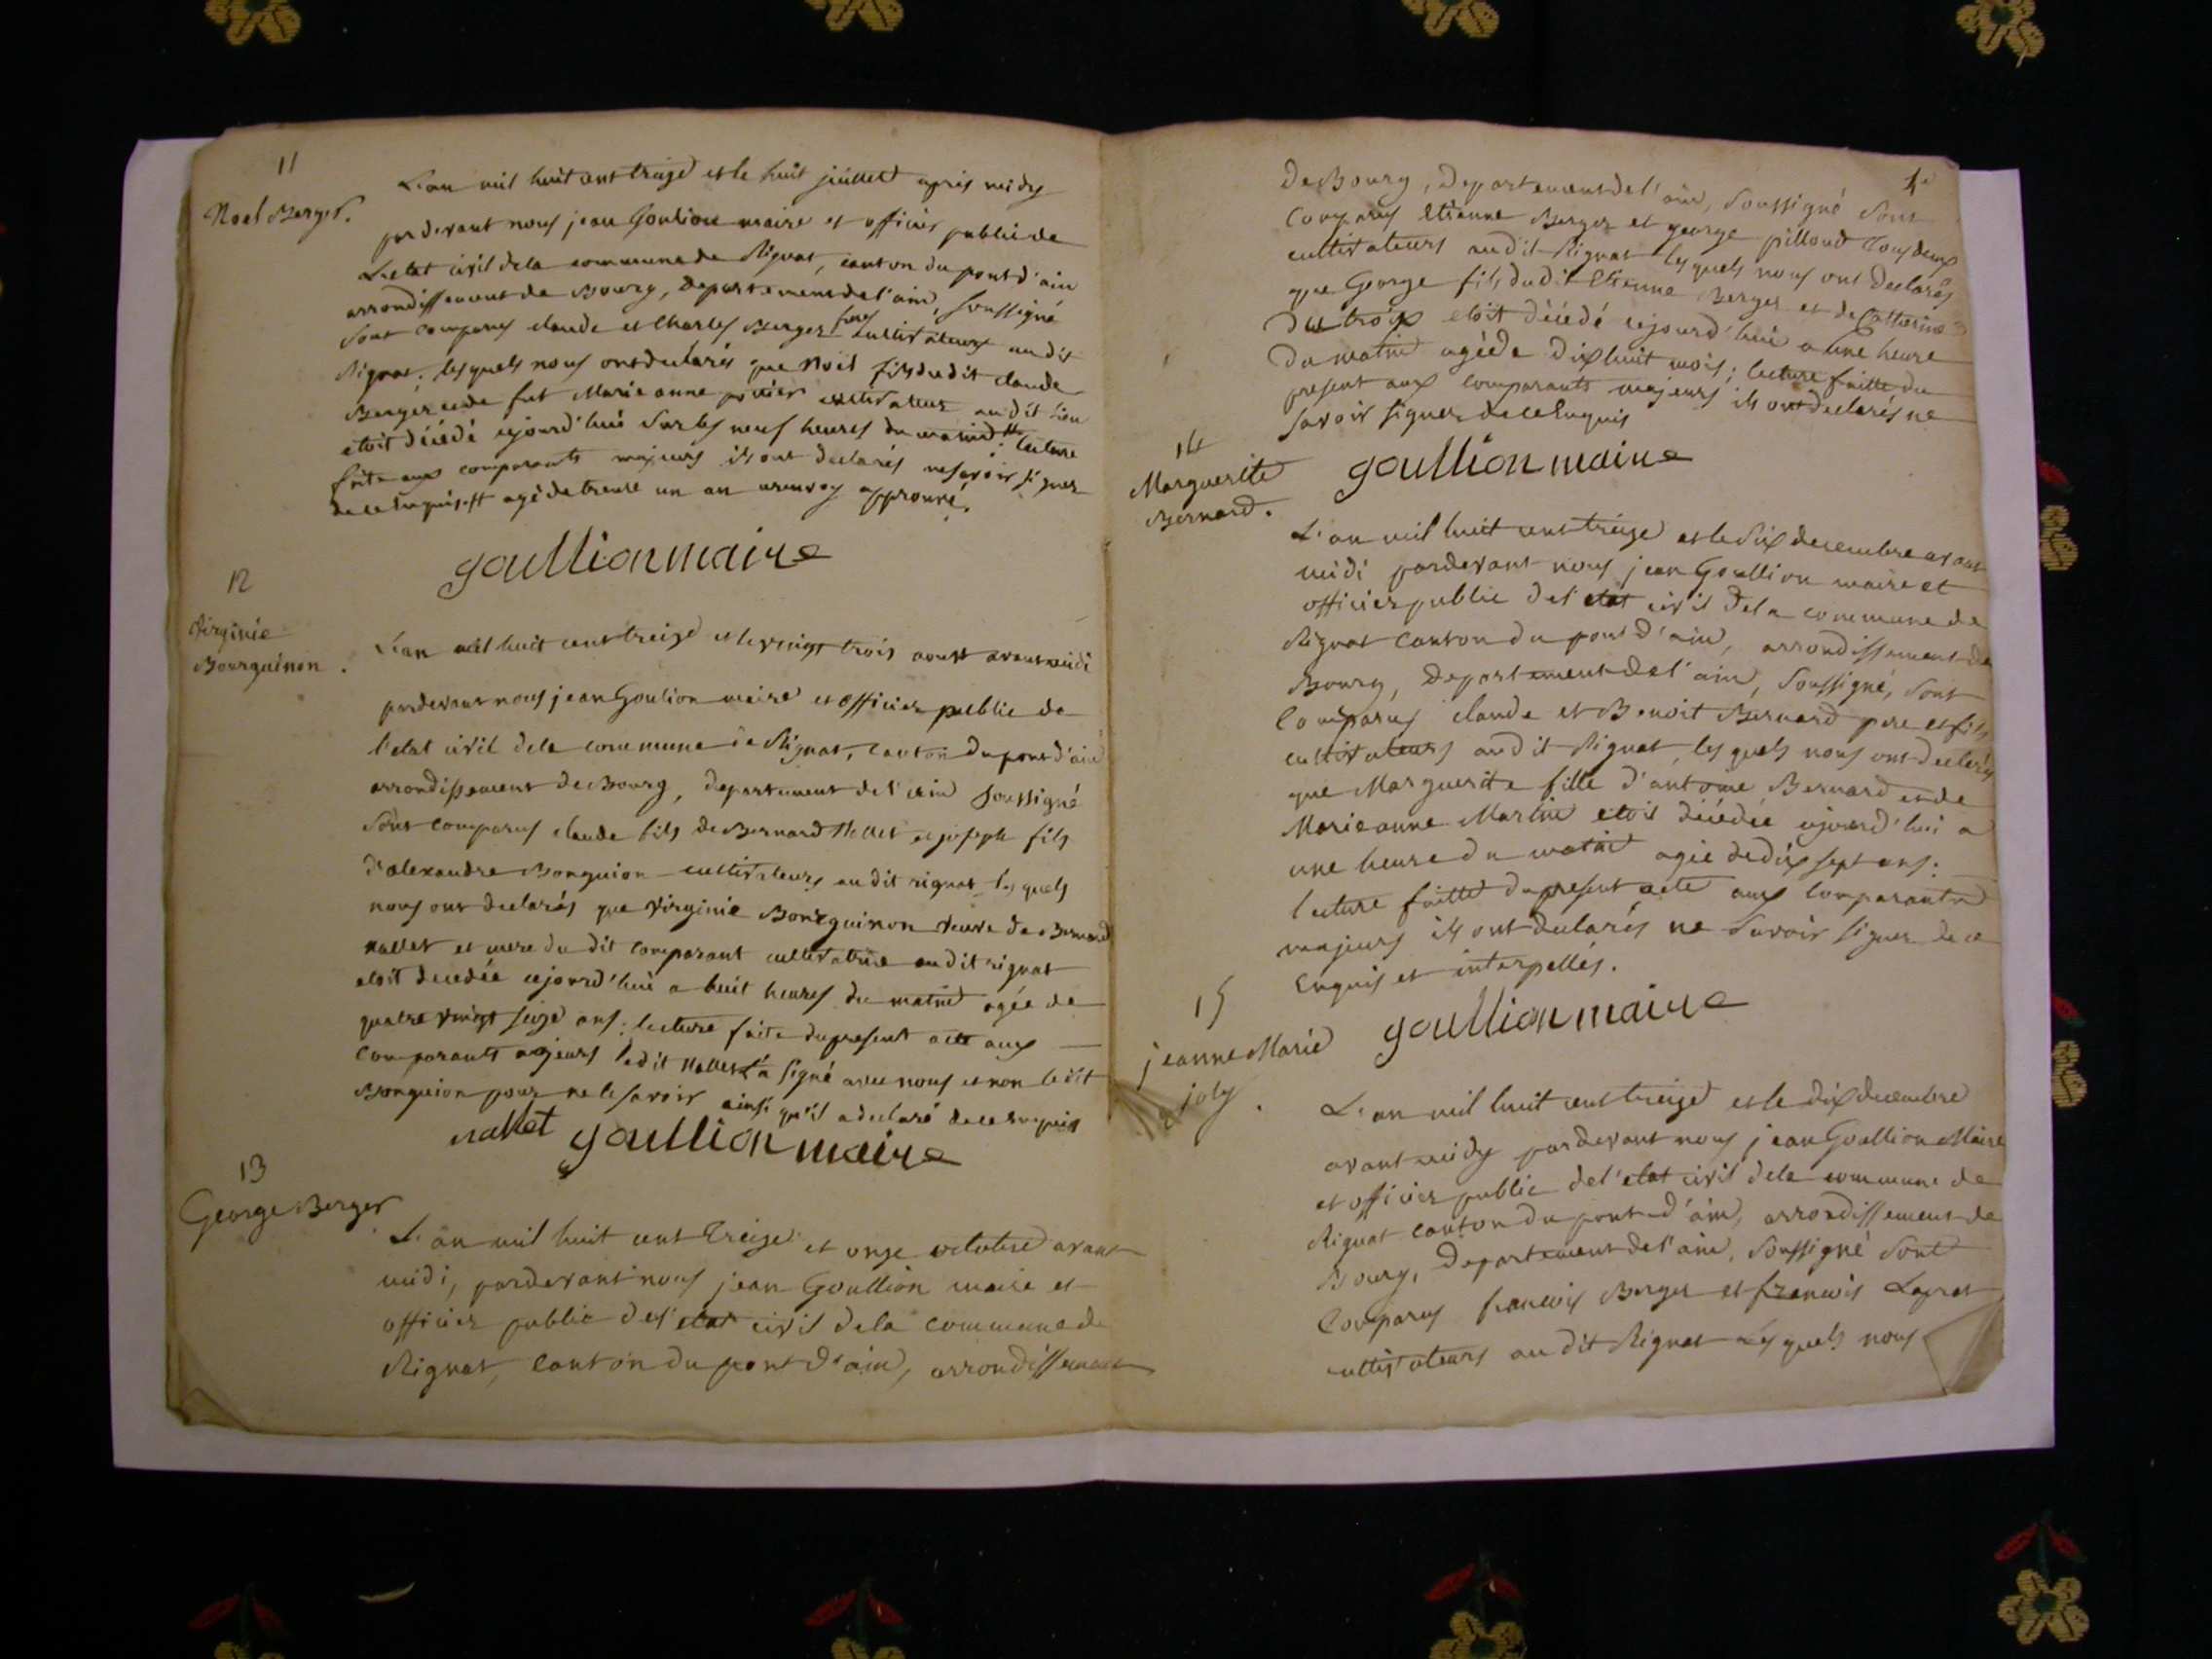 11
Noel Berger.
L'an mil huit cent treize et le huit juillet après midy
pardevant nous jean Goulion maire et officier public de
L'etat civil dela commune de Rignat, canton du pont d'ain
arrondissement de Bourg, departement de l'ain, soussigné
sont comparus claude et Charles Berger freres cultivateurs audit
Rignat; lesquels nous ont declarés que Noël fils dudit claude
Berger et de fut Marie anne cultivateur audit lieu
etoit décédé cejourd'hui sur les neuf heures du matin # lecture
faite aux comparants majeurs ils ont declarés ne savoir signer
de ce enquis # agé de treuse un an renvoy approuvé.
goullion maire
12
Virginie
Bourguinon.
L'an mil huit cent treize et le vingt trois aoust avant midi
pardevant nous jean Goulion maire et officier public de
l'etat civil dela commune de Rignat, canton du pont d'ain
arrondissement de Bourg, departement de l'ain soussigné
sont comparus claude fils de Bernard Nallet et joseph fils
d'alexandre Bonguion cultivateurs audit rignat lesquels
nous ont declarés que virginie Bourguinon veuve de Bernard
nallet et mere du dit comparant cultivatrice audit rignat
etoit decedée cejourd'hui a huit heures du matin agée de
quatre vingt seize ans; lecture faite du present acte aux
comparants majeurs ledit Nallet a signé avec nous et non ledit
Bonguion pour ne le savoir ainsi qu'il a declaré de ce enquis
nallet goullion maire
13
George Berger
L'an mil huit cent treize et onze octobre avant
midi, pardevant nous jean Goullion maire et
officier public de l'etat civil dela commune de
Rignat, canton du pont d'ain, arrondissement
de Bourg, departement de l'ain, soussigné sont
comparus etienne Berger et george pilloud tous deux
cultivateurs audit Rignat lesquels nous ont declarés
que George fils dudit Etienne Berger et de Catherine
etoit décédé cejourd'hui a une heure
du matin agé de dix huit mois; lecture faitte du
present aux comparants majeurs ils ont declarés ne
savoir signer de ce enquis
goullion maire
14
Marguerite
Bernard.
L'an mil huit cent treize et le six decembre avant
midi pardevant nous jean Goullion maire et
officier public de l'etat civil dela commune de
Rignat canton du pont d'ain, arrondissement de
Bourg, departement de l'ain, soussigné, sont
comparus claude et Benoit Bernard pere et fils
cultivateurs audit Rignat, lesquels nous ont declarés
que Marguerite fille d'antoine Bernard et de
Marie anne Martin etoit décédée cejourd'hui a
une heure du matin agée de dix sept ans:
lecture faitte du present acte aux comparants
majeurs ils ont declarés ne savoir signer de ce
enquis et interpellés.
goullion maire
15
jeanne Marie
joly.
L'an mil huit cent treize et le dix decembre
avant midy pardevant nous jean Goullion Maire
et officier public de l'etat civil dela commune de
Rignat canton du pont d'ain, arrondissement de
Bourg, departement de l'ain, soussigné sont
comparus francois Berger et francois
cultivateurs au dit Rignat Lesquels nous